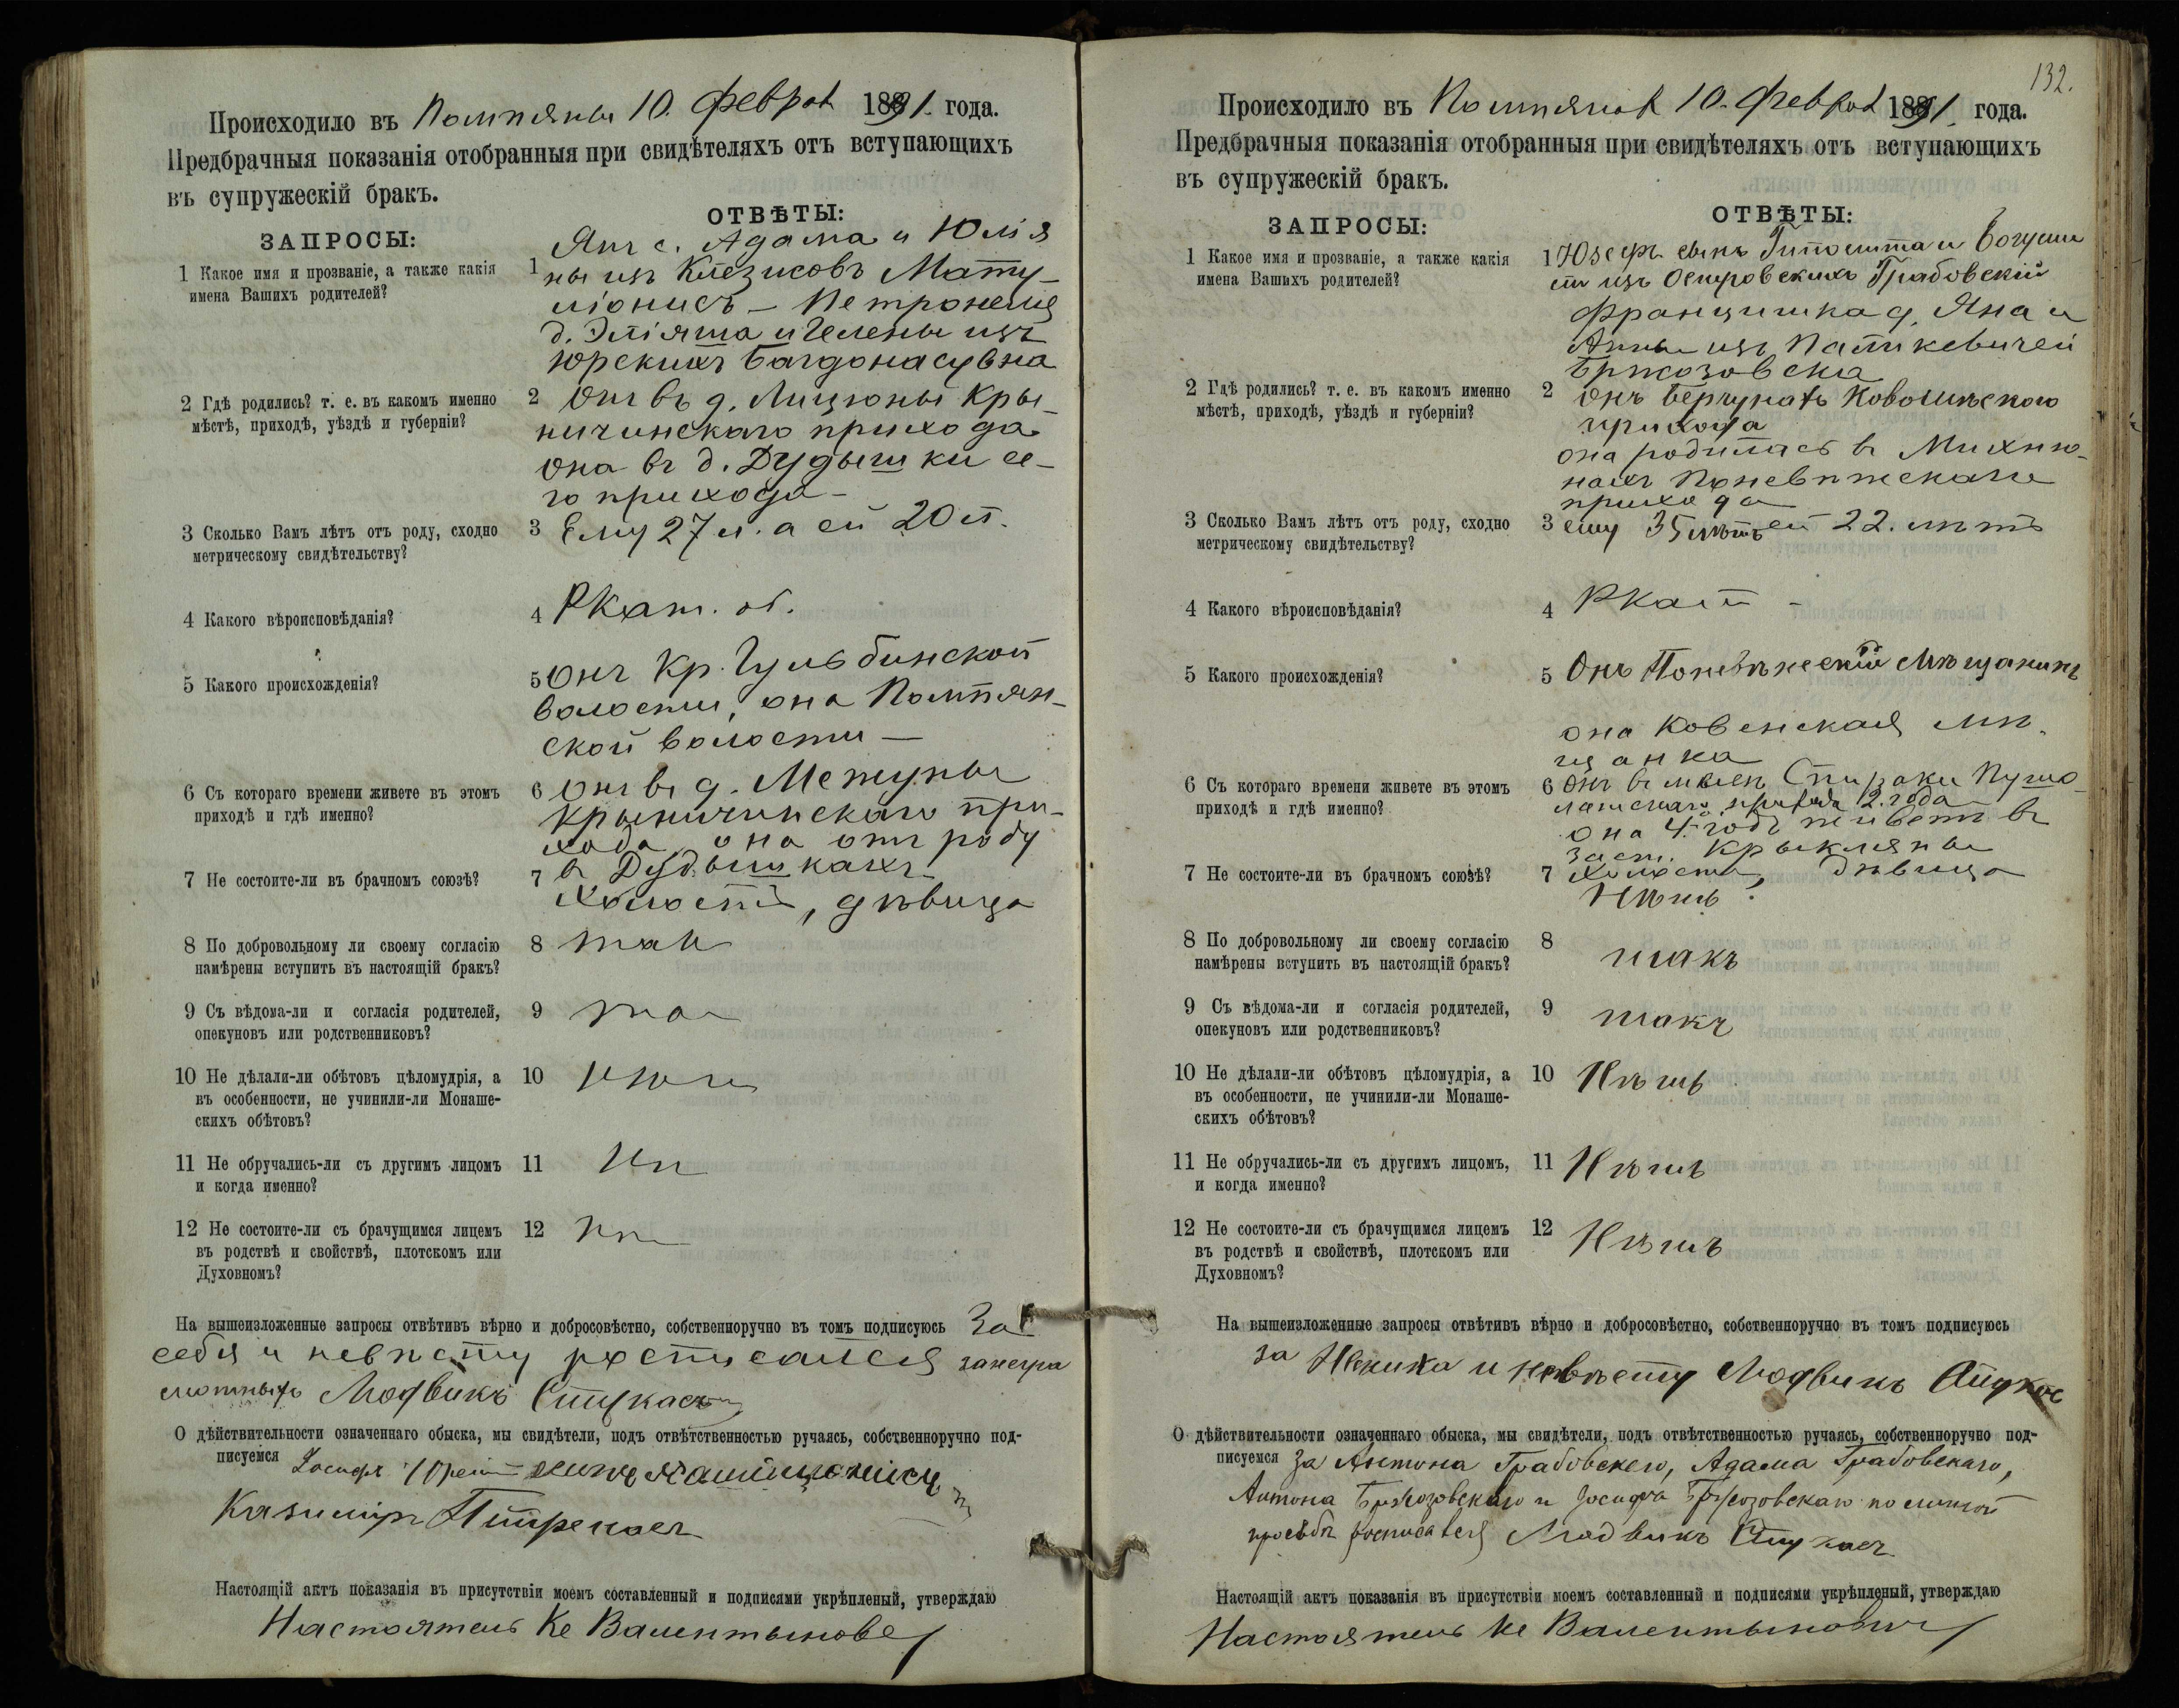 Происходило въ Помпяны 10. Феврал 1891. года.
Предбрачныя показанія отобранныя при свидѣтеляхъ отъ вступающихъ
въ супружескій бракъ.
ЗАПРОСЫ:
ОТВѢТЫ:
1 Какое имя и прозваніе, а также какія
имена Вашихъ родителей?
1 Янъ с. Адама и Юлія
ны изъ
Петронеля
и Гелены изъ
Юрскихъ Багдонасувна
2 Гдѣ родились? т. е. въ какомъ именно
мѣстѣ, приходѣ, уѣздѣ и губерніи?
2 Онъ въ д. Лицюны Кры-
ничинскаго прихода
Она въ д. Дудышки се-
го прихода -
3 Сколько Вамъ лѣтъ отъ роду, сходно
метрическому свидѣтельству?
3 Ему 27 л. а ей 20 л.
4 Какого вѣроисповѣданія?
4 РКат. об.
5 Какого происхожденія?
5 Онъ Кр. Гульбинской
волости, она Помпян-
ской волости —
6 Съ котораго времени живете въ этомъ
приходѣ и гдѣ именно?
6 Онъ въ д. Межуны
Крыничинскаго при-
хода, она отъ роду
въ Дудышкахъ
7 Не состоите-ли въ брачномъ союзѣ?
7 Холостъ, дѣвица
8 По добровольному ли своему согласію
намѣрены вступить въ настоящій бракъ?
8 так
9 Съ вѣдома-ли и согласія родителей,
опекуновъ или родственниковъ?
9 та
10 Не дѣлали-ли обѣтовъ цѣломудрія, а
въ особенности, не учинили-ли Монаше-
скихъ обѣтовъ?
10
11 Не обручались-ли съ другимъ лицомъ
и когда именно?
11 Нѣ
12 Не состоите-ли съ брачущимся лицемъ
въ родствѣ и свойствѣ, плотскомъ или
Духовномъ?
12 Нѣ
На вышеизложенные запросы отвѣтивъ вѣрно и добросовѣстно, собственноручно въ томъ подписуюсь За
себя и невѣсту росписался за негра
мотныхъ Людвикъ Стукасъ
О дѣйствительности означеннаго обыска, мы свидѣтели, подъ отвѣтственностью ручаясь, собственноручно под-
писуемся Іосифъ
Казимiръ
Настоящій актъ показанія въ присутствіи моемъ составленный и подписями укрѣпленый, утверждаю
Настоятель Кс Валентынович
132.
Происходило въ Помпянах 10. Феврал 1891. года.
Предбрачныя показанія отобранныя при свидѣтеляхъ отъ вступающихъ
въ супружескій бракъ.
ЗАПРОСЫ:
ОТВѢТЫ:
1 Какое имя и прозваніе, а также какія
имена Вашихъ родителей?
1 Юзефъ сынъ Гиполита и
изъ Островскихъ Грабовскій
Францишка д. Яна и
Анны изъ Паткевичей
Бржозовска
2 Гдѣ родились? т. е. въ какомъ именно
мѣстѣ, приходѣ, уѣздѣ и губерніи?
2 Онъ
прихода
она родилась въ Михню-
нахъ Поневѣжскаго
прихода
3 Сколько Вамъ лѣтъ отъ роду, сходно
метрическому свидѣтельству?
3 ему 35 лѣтъ ей 22. лѣтъ
4 Какого вѣроисповѣданія?
4 РКат -
5 Какого происхожденія?
5 Онъ Поневѣжескій Мѣщанинъ
она Ковенская мѣ-
щанка
6 Съ котораго времени живете въ этомъ
приходѣ и гдѣ именно?
6 Онъ въ имѣен. Стираки Пушо-
латскаго прихода 2. года
она 4. годъ живетъ въ
заст. Крыкляны
7 Не состоите-ли въ брачномъ союзѣ?
7 Холостъ, дѣвица
Нѣтъ.
8 По добровольному ли своему согласію
намѣрены вступить въ настоящій бракъ?
8 такъ
9 Съ вѣдома-ли и согласія родителей,
опекуновъ или родственниковъ?
9 такъ
10 Не дѣлали-ли обѣтовъ цѣломудрія, а
въ особенности, не учинили-ли Монаше-
скихъ обѣтовъ?
10 Нѣтъ
11 Не обручались-ли съ другимъ лицомъ,
и когда именно?
11 Нѣтъ
12 Не состоите-ли съ брачущимся лицемъ
въ родствѣ и свойствѣ, плотскомъ или
Духовномъ?
12 Нѣтъ
На вышеизложенные запросы отвѣтивъ вѣрно и добросовѣстно, собственноручно въ томъ подписуюсь
за Жениха и невѣсту Людвикъ Стукас
О дѣйствительности означеннаго обыска, мы свидѣтели, подъ отвѣтственностью ручаясь, собственноручно под-
писуемся За Антона Грабовского, Адама Грабовскаго,
Антона Бржозовскаго и Іосифа Бржозовскаго по личной
просьбѣ росписался Людвикъ Стукасъ
Настоящій актъ показанія въ присутствіи моемъ составленный и подписями укрѣпленый, утверждаю
Настоятель Кс Валентынович